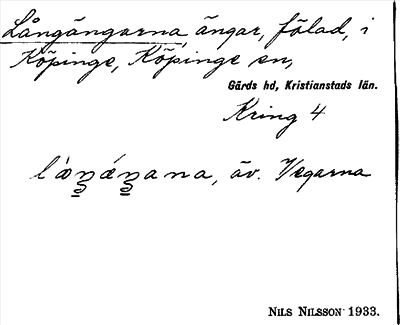 Långängarna ängar, fölad, i
Köpinge, Köpinge sn,
Gärds hd, Kristianstads län.
Kring 4
äv. Vegarna
NILS NILSSON 1933.